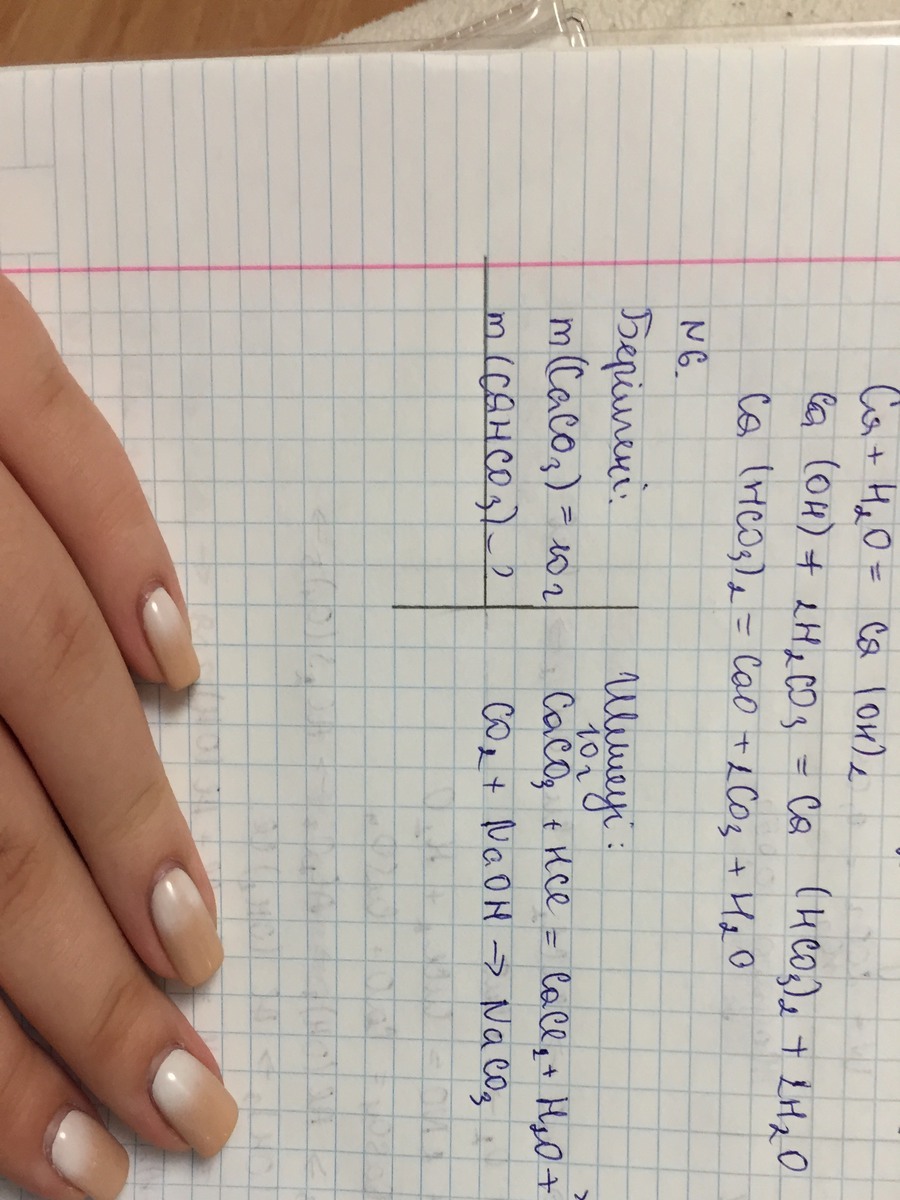 Ca + H₂O = Ca (OH)₂
Ca (OH) + 2H₂CO₃ = Ca (HCO₃)₂ + 2H₂O
Ca (HCO₃)₂ = CaO + 2CO₃ + H₂O
N6.
Берілгені:
m(CaCO₃) = 10г
m(CaHCO₃) - ?
Шешуі:
10г
CaCO₃ + HCl = CaCl₂ + H₂O +
CO₂ + NaOH → NaCO₃